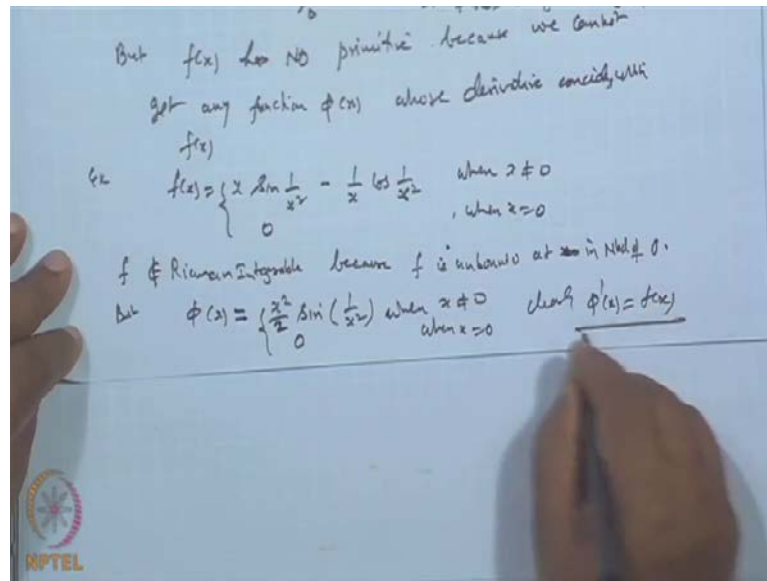 But f(x) has NO primitive because we cannot
get any function φ(x) whose derivative coincides with
f(x)
Ex f(x) = { x sin 1/x² - 1/x cos 1/x² when x ≠ 0
0 , when x = 0
f ∉ Riemann Integrable because f is unbound at in Nbd of 0.
But φ(x) = { x²/2 sin (1/x²) when x ≠ 0 clearly φ'(x) = f(x)
0 when x = 0
NPTEL